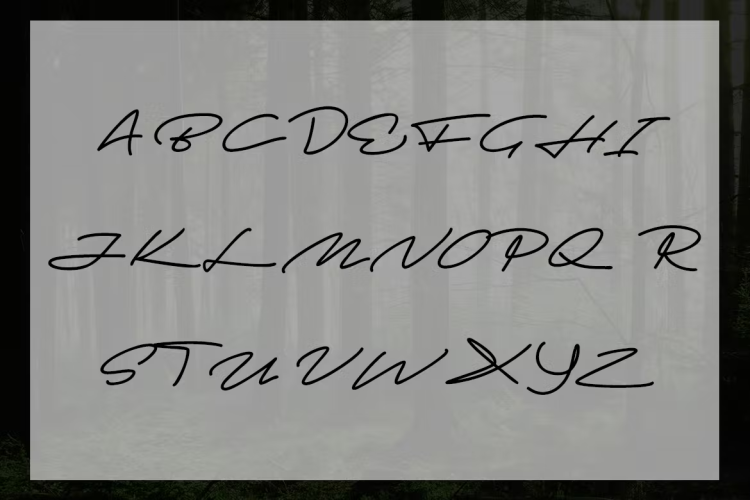 ABCDEFGHI
JKLMNOPQ R
STUVWXYZ